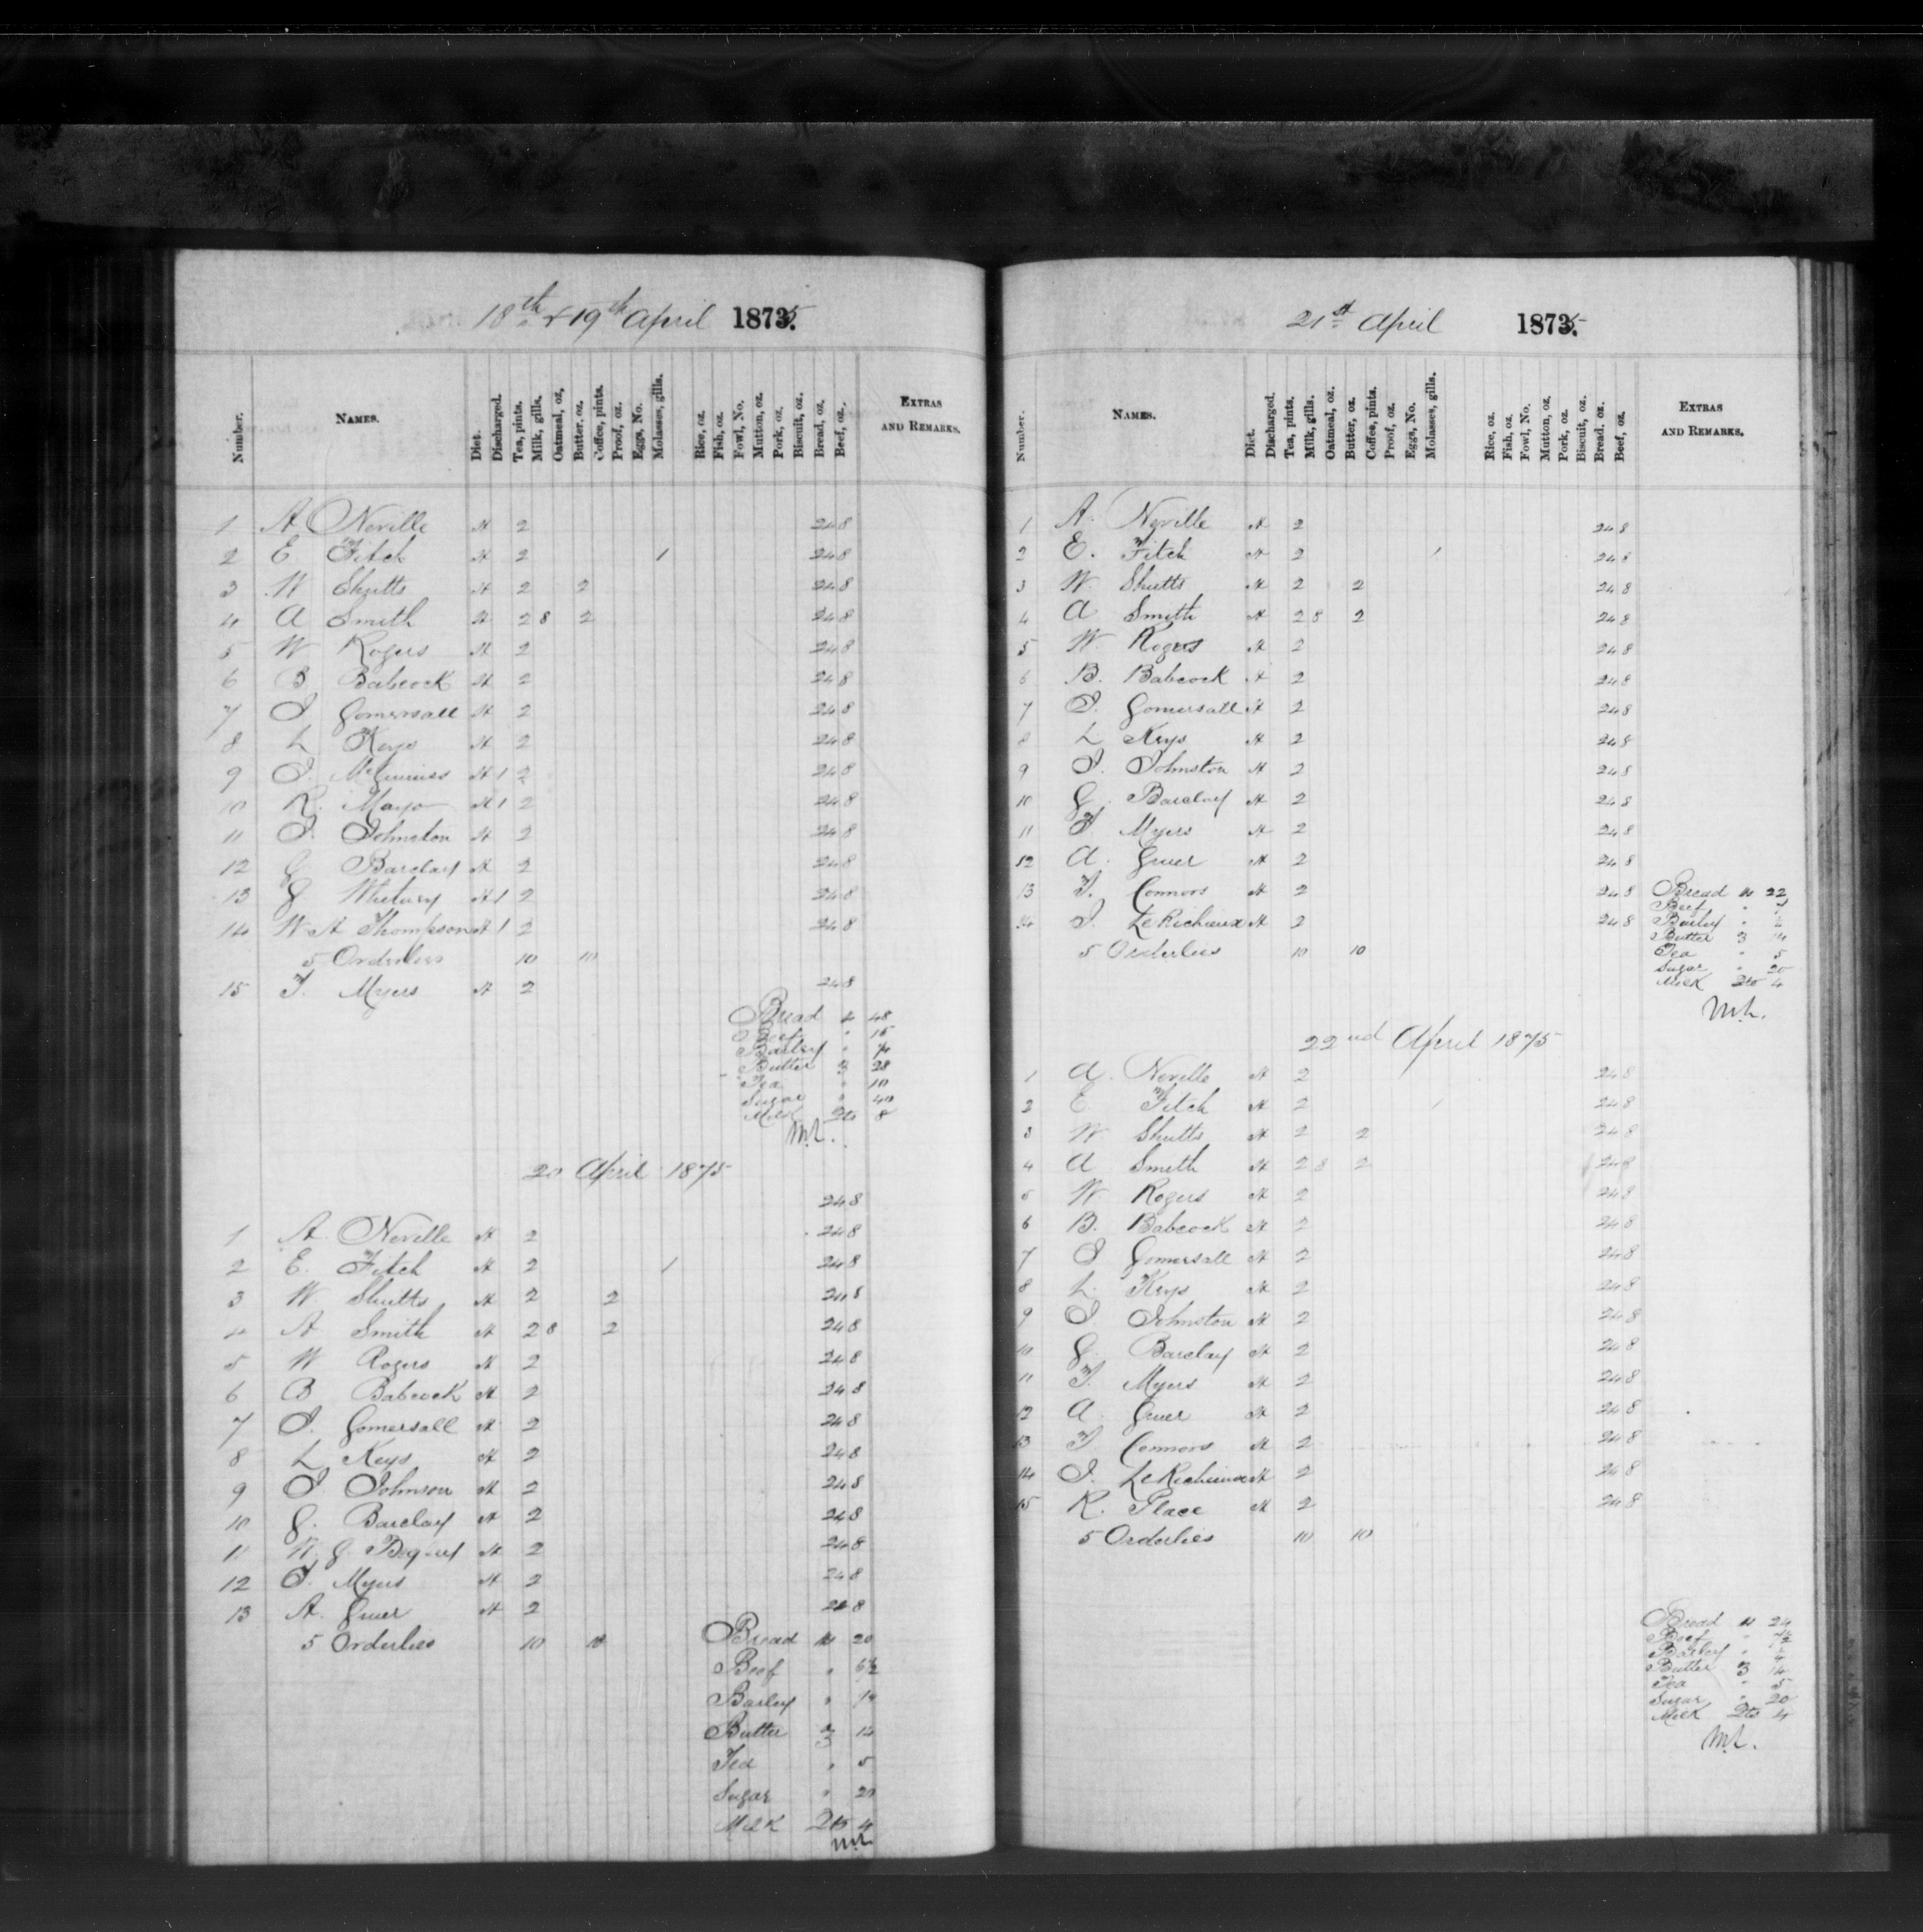 18th & 19th April 1875.
Number. NAMES. Diet. Discharged. Tea, pints. Milk, gills. Oatmeal, oz. Butter, oz. Coffee, pints. Proof, oz. Eggs, No. Molasses, gills. Rice, oz. Fish, oz. Fowl, No. Mutton, oz. Pork, oz. Biscuit, oz. Bread, oz. Beef, oz. EXTRAS AND REMARKS.
1 A Neville H 2 24 8
2 E Fitch H 2 1 24 8
3 W Shutts H 2 2 24 8
4 A Smith H 2 8 2 24 8
5 W Rogers H 2 24 8
6 B Babcock H 2 24 8
7 J Gomersall H 2 24 8
8 L Keys H 2 24 8
9 J. McGuiness H 1 2 24 8
10 R. Mayo H 1 2 24 8
11 J. Johnston H 2 24 8
12 G Barclay H 2 24 8
13 G H 1 2 24 8
14 W A Thompson H 1 2 24 8
5 Orderlies 10 10
15 T. Myers H 2 24 8
Bread lb 48
Beef " 15
Barley "
Butter ℥ 28
Tea " 10
Sugar " 40
Milk Qts 8
20 April 1875
24 8
1 A. Neville H 2 24 8
2 E. Fitch H 2 1 24 8
3 W Shutts H 2 2 24 8
4 A Smith H 2 8 2 24 8
5 W Rogers H 2 24 8
6 B Babcock H 2 24 8
7 J. Gomersall H 2 24 8
8 L Keys H 2 24 8
9 J Johnson H 2 24 8
10 G. Barclay H 2 24 8
11 W. G. H 2 24 8
12 J. Myers H 2 24 8
13 A. Gruer H 2 24 8
5 Orderlies 10 10
Bread lb 20
Beef " 6½
Barley "
Butter ℥ 14
Tea " 5
Sugar " 20
Milk Qts 4
21st April 1875
Number. NAMES. Diet. Discharged. Tea, pints. Milk, gills. Oatmeal, oz. Butter, oz. Coffee, pints. Proof, oz. Eggs, No. Molasses, gills. Rice, oz. Fish, oz. Fowl, No. Mutton, oz. Pork, oz. Biscuit, oz. Bread, oz. Beef, oz. EXTRAS AND REMARKS.
1 A. Neville H 2 24 8
2 E. Fitch H 2 1 24 8
3 W. Shutts H 2 2 24 8
4 A Smith H 2 8 2 24 8
5 W. Rogers H 2 24 8
6 B. Babcock H 2 24 8
7 J. Gomersall H 2 24 8
8 L Keys H 2 24 8
9 J. Johnston H 2 24 8
10 G. Barclay H 2 24 8
11 T Myers H 2 24 8
12 A. Gruer H 2 24 8
13 T. Connors H 2 24 8
14 J. LeRichieux H 2 24 8
5 Orderlies 10 10
Bread lb 22
Beef " 7
Barley "
Butter ℥ 14
Tea " 5
Sugar " 20
Milk Qts 4
22nd April 1875
1 A. Neville H 2 24 8
2 E. Fitch H 2 1 24 8
3 W Shutts H 2 2 24 8
4 A Smith H 2 8 2 24 8
5 W. Rogers H 2 24 8
6 B. Babcock H 2 24 8
7 J Gomersall H 2 24 8
8 L. Keys H 2 24 8
9 J. Johnston H 2 24 8
10 G. Barclay H 2 24 8
11 T. Myers H 2 24 8
12 A. Gruer H 2 24 8
13 T Connors H 2 24 8
14 J. LeRichieux H 2 24 8
15 R. Place H 2 24 8
5 Orderlies 10 10
Bread lb 24
Beef " 7½
Barley "
Butter ℥ 14
Tea " 5
Sugar " 20
Milk Qts 4